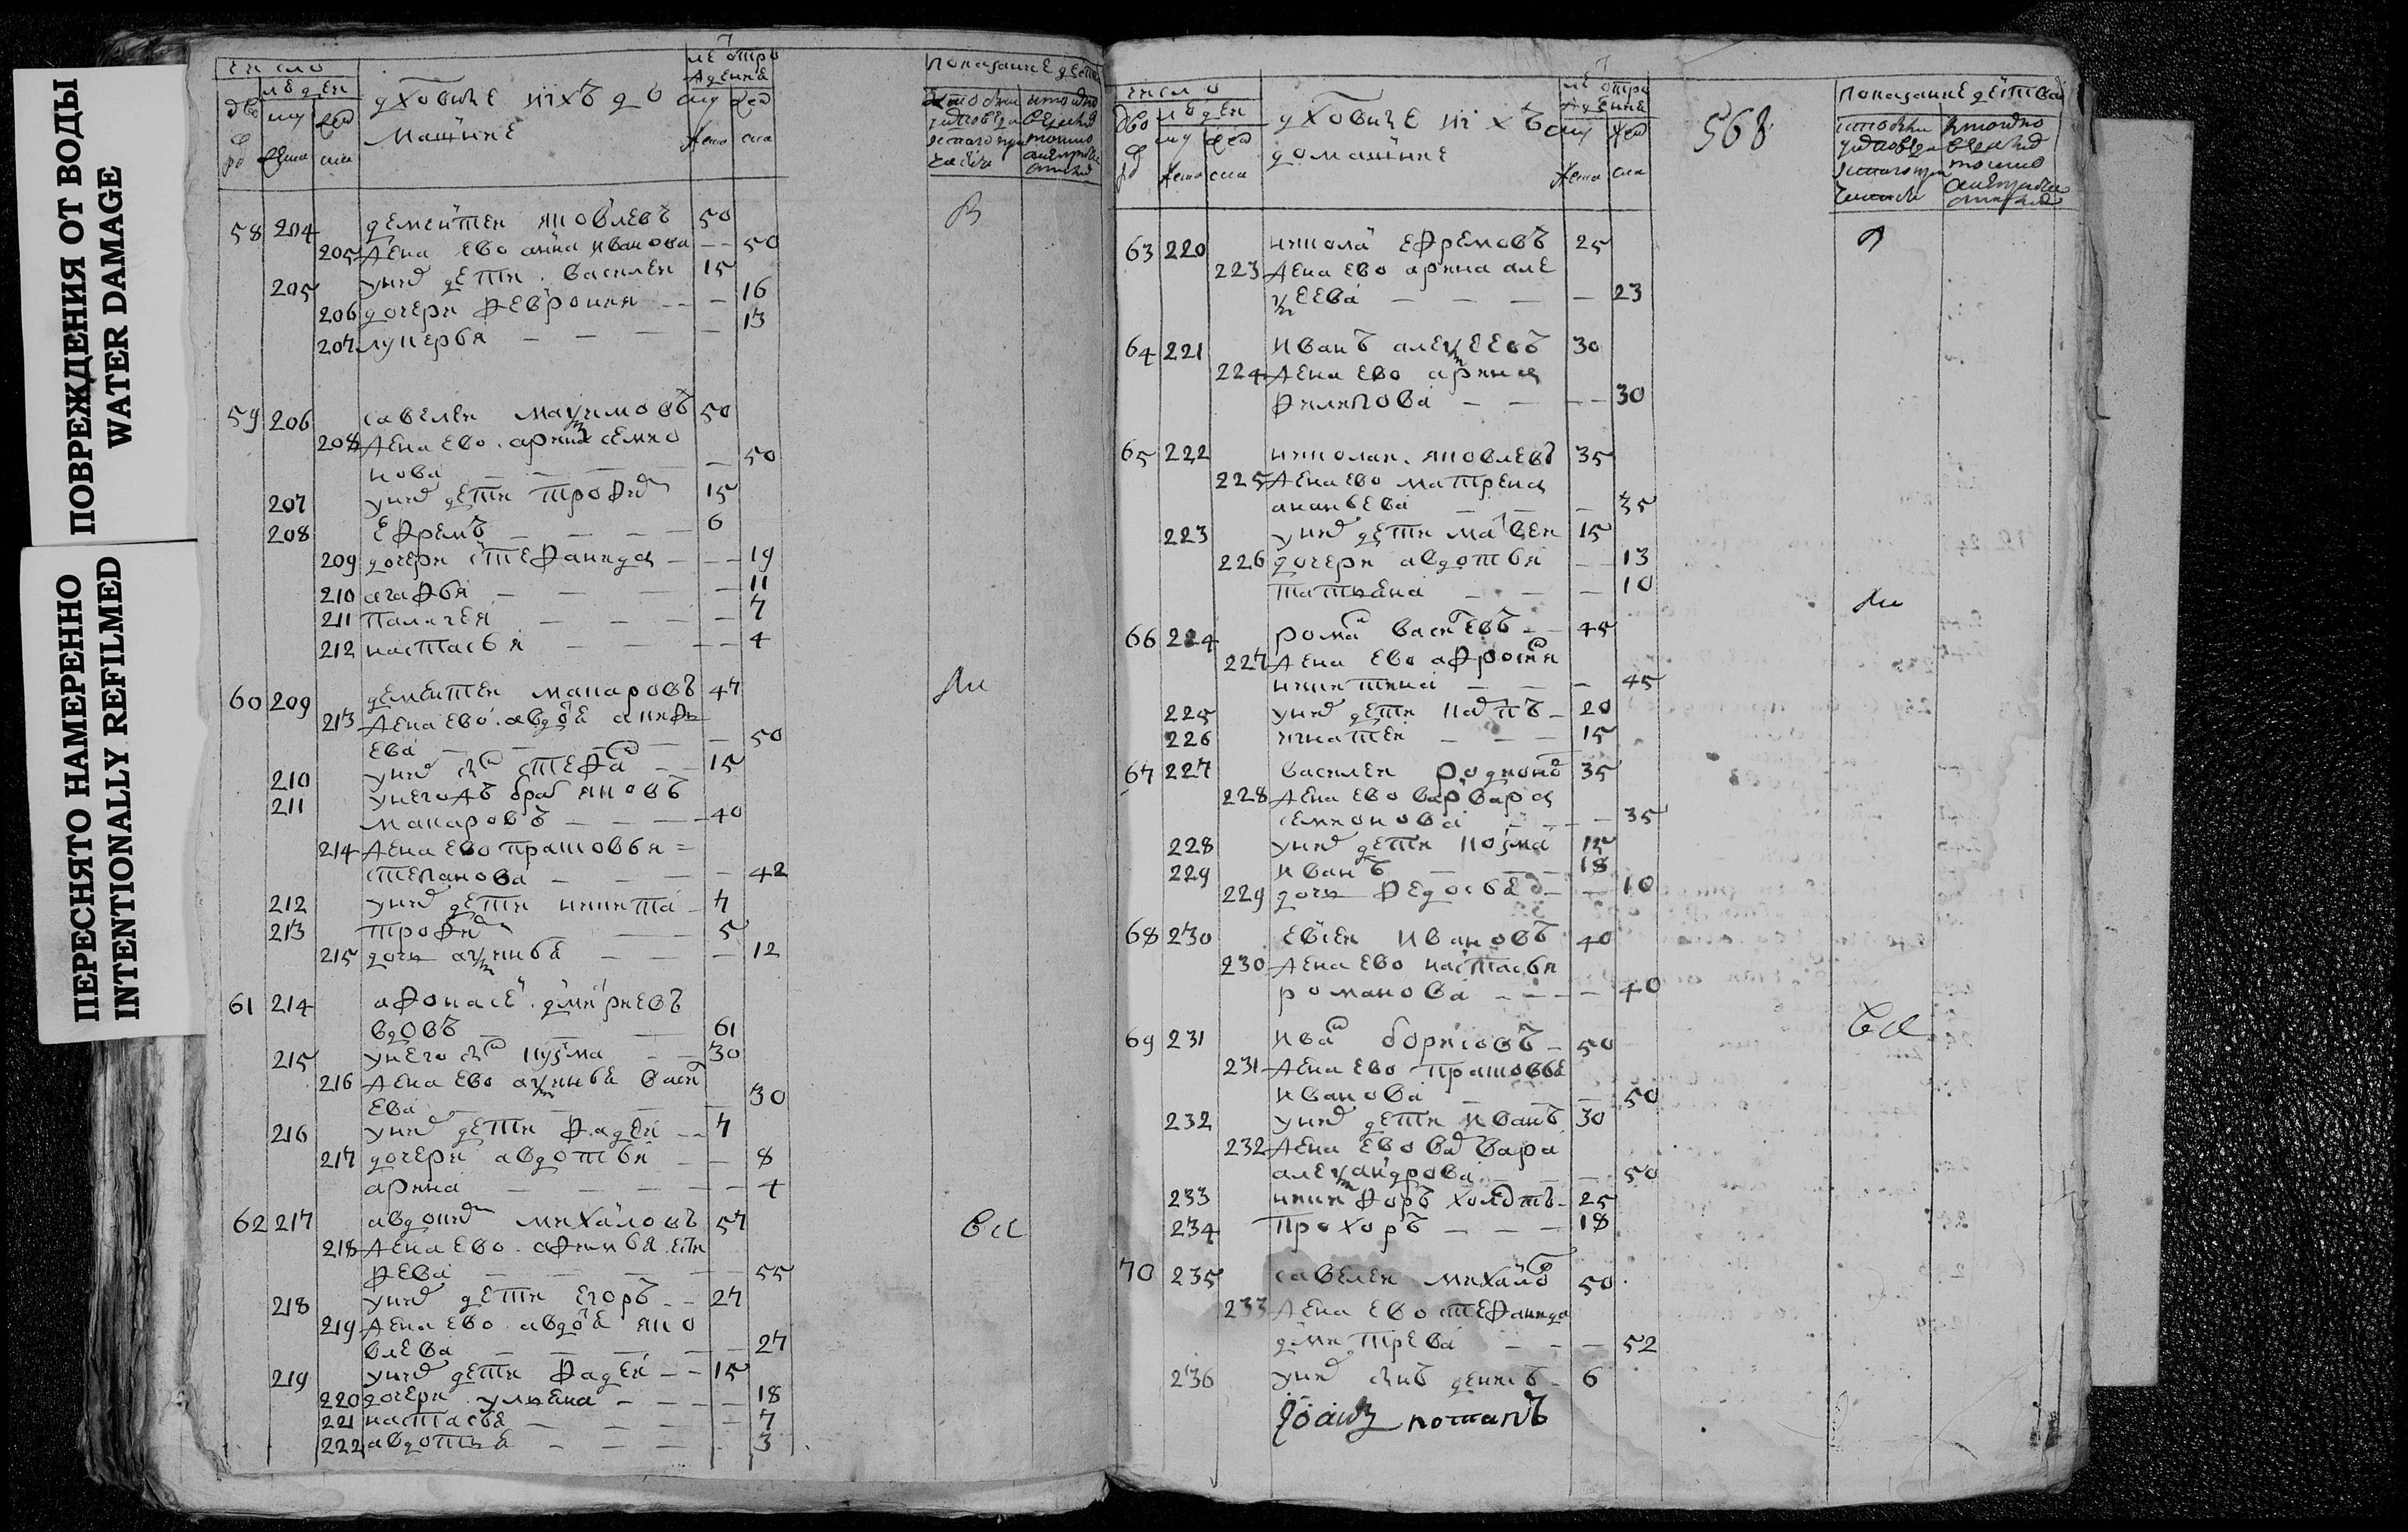 ПОВРЕЖДЕНИЯ ОТ ВОДЫ
WATER DAMAGE
ПЕРЕСНЯТО НАМЕРЕННО
INTENTIONALLY REFILMED
число
людеи
духовные и ихъ до
машние
лѣ отро
жденiя
показание действа
58 204 дементеи яковлевъ 50
205 жена ево анна иванова 50
205 унихъ дети василеи 15
206 дочери феврония 16
207 лукерья 13
59 206 савелеи маѯимовъ 50
208 жена ево арина семио
нова 50
207 унихъ дети трофим 15
208 ефремъ 6
209 дочери стефанида 19
210 агафья 11
211 палагея 7
212 настасья 4
60 209 дементеи макаровъ 47
213 жена ево авдоя
ева 50
210 унихъ снъ стефан 15
211 унегожъ брат яковъ
макаровъ 40
214 жена ево прасковья
степанова 42
212 унихъ дети никита 7
213 трофим 5
215 дочь аѯинья 12
61 214 афонасеи дмитриевъ
вдовъ 61
215 унего снъ кузма 30
216 жена ево аѯинья васил
ева 30
216 унихъ дети фадеи 7
217 дочери авдотья 8
арина 4
62 217 авдоким михаиловъ 57
218 жена ево афимья
фева 55
218 унихъ дети егоръ 27
219 жена ево авдоя яко
влева 27
219 унихъ дети фадеи 15
220 дочери ульяна 18
221 настасья 7
222 авдотья 3
568
число
людеи
духовные и ихъ
домашние
лѣ отро
жденiя
показание действа
63 220 никола ефремовъ 25
223 жена ево арина але
ѯеева 23
64 221 иванъ алеѯеевъ 30
224 жена ево арина
филипова 30
65 222 николаи яковлевъ 35
225 жена ево матрена
ананьева 35
223 унихъ дети матвеи 15
226 дочери авдотья 13
татьяна 10
66 224 роман василевъ 45
227 жена ево афросиня
никитина 45
225 унихъ дети карпъ 20
226 игнатеи 15
67 227 василеи родионов 35
228 жена ево варвара
семионова 35
228 унихъ дети козма 15
229 иванъ 18
229 дочь федосья 10
68 230 евсеи ивановъ 40
230 жена ево настасья
романова 40
69 231 иван борисовъ 50
231 жена ево прасковья
иванова 50
232 унихъ дети иванъ 30
232 жена ево варвара
алеѯандрова 50
233 никифоръ холостъ 25
234 прохоръ 18
70 235 савелеи михаилов 50
233 жена ево стефанида
дмитрева 52
236 унихъ снъ денисъ 6